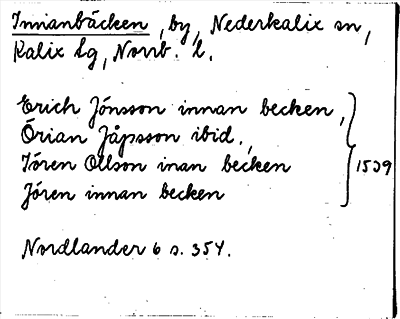 Innanbäcken, by, Nederkalix sn,
Kalix tg, Norrb. l.
Erich Jónsson innan becken,
Örian Jåpsson ibid.,
Jören Ollson inan becken
Jören innan becken
1539
Nordlander 6 s. 354.